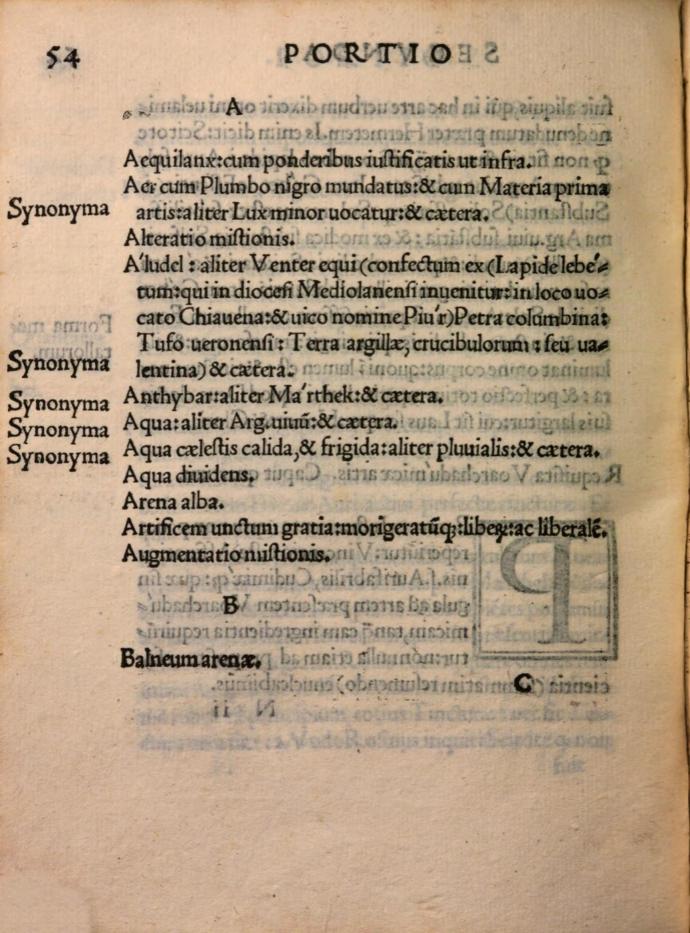 54 PORTIO
A
Aequilanx:cum ponderibus iustificatis ut infra.
Aer cum Plumbo nigro mundatus:& cum Materia prima
Synonyma artis:aliter Lux minor uocatur:& cætera.
Alteratio mistionis.
A'ludel : aliter Venter equi (confectum ex (Lapide lebe'-
tum:qui in diocesi Mediolanensi inuenitur:in loco uo-
cato Chiauena:& uico nomine Piu'r)Petra columbina:
Tufo ueronensi : Terra argillæ, crucibulorum : seu ua-
Synonyma lentina) & cætera.
Synonyma Anthybar:aliter Ma'rthek:& cætera.
Synonyma Aqua:aliter Arg.uiuū:& cætera.
Synonyma Aqua cælestis calida,& frigida:aliter pluuialis:& cætera.
Aqua diuidens.
Arena alba.
Artificem unctum gratia:morigeratūq;: ac liberalē.
Augmentatio mistionis.
B
Balneum arenæ.
C